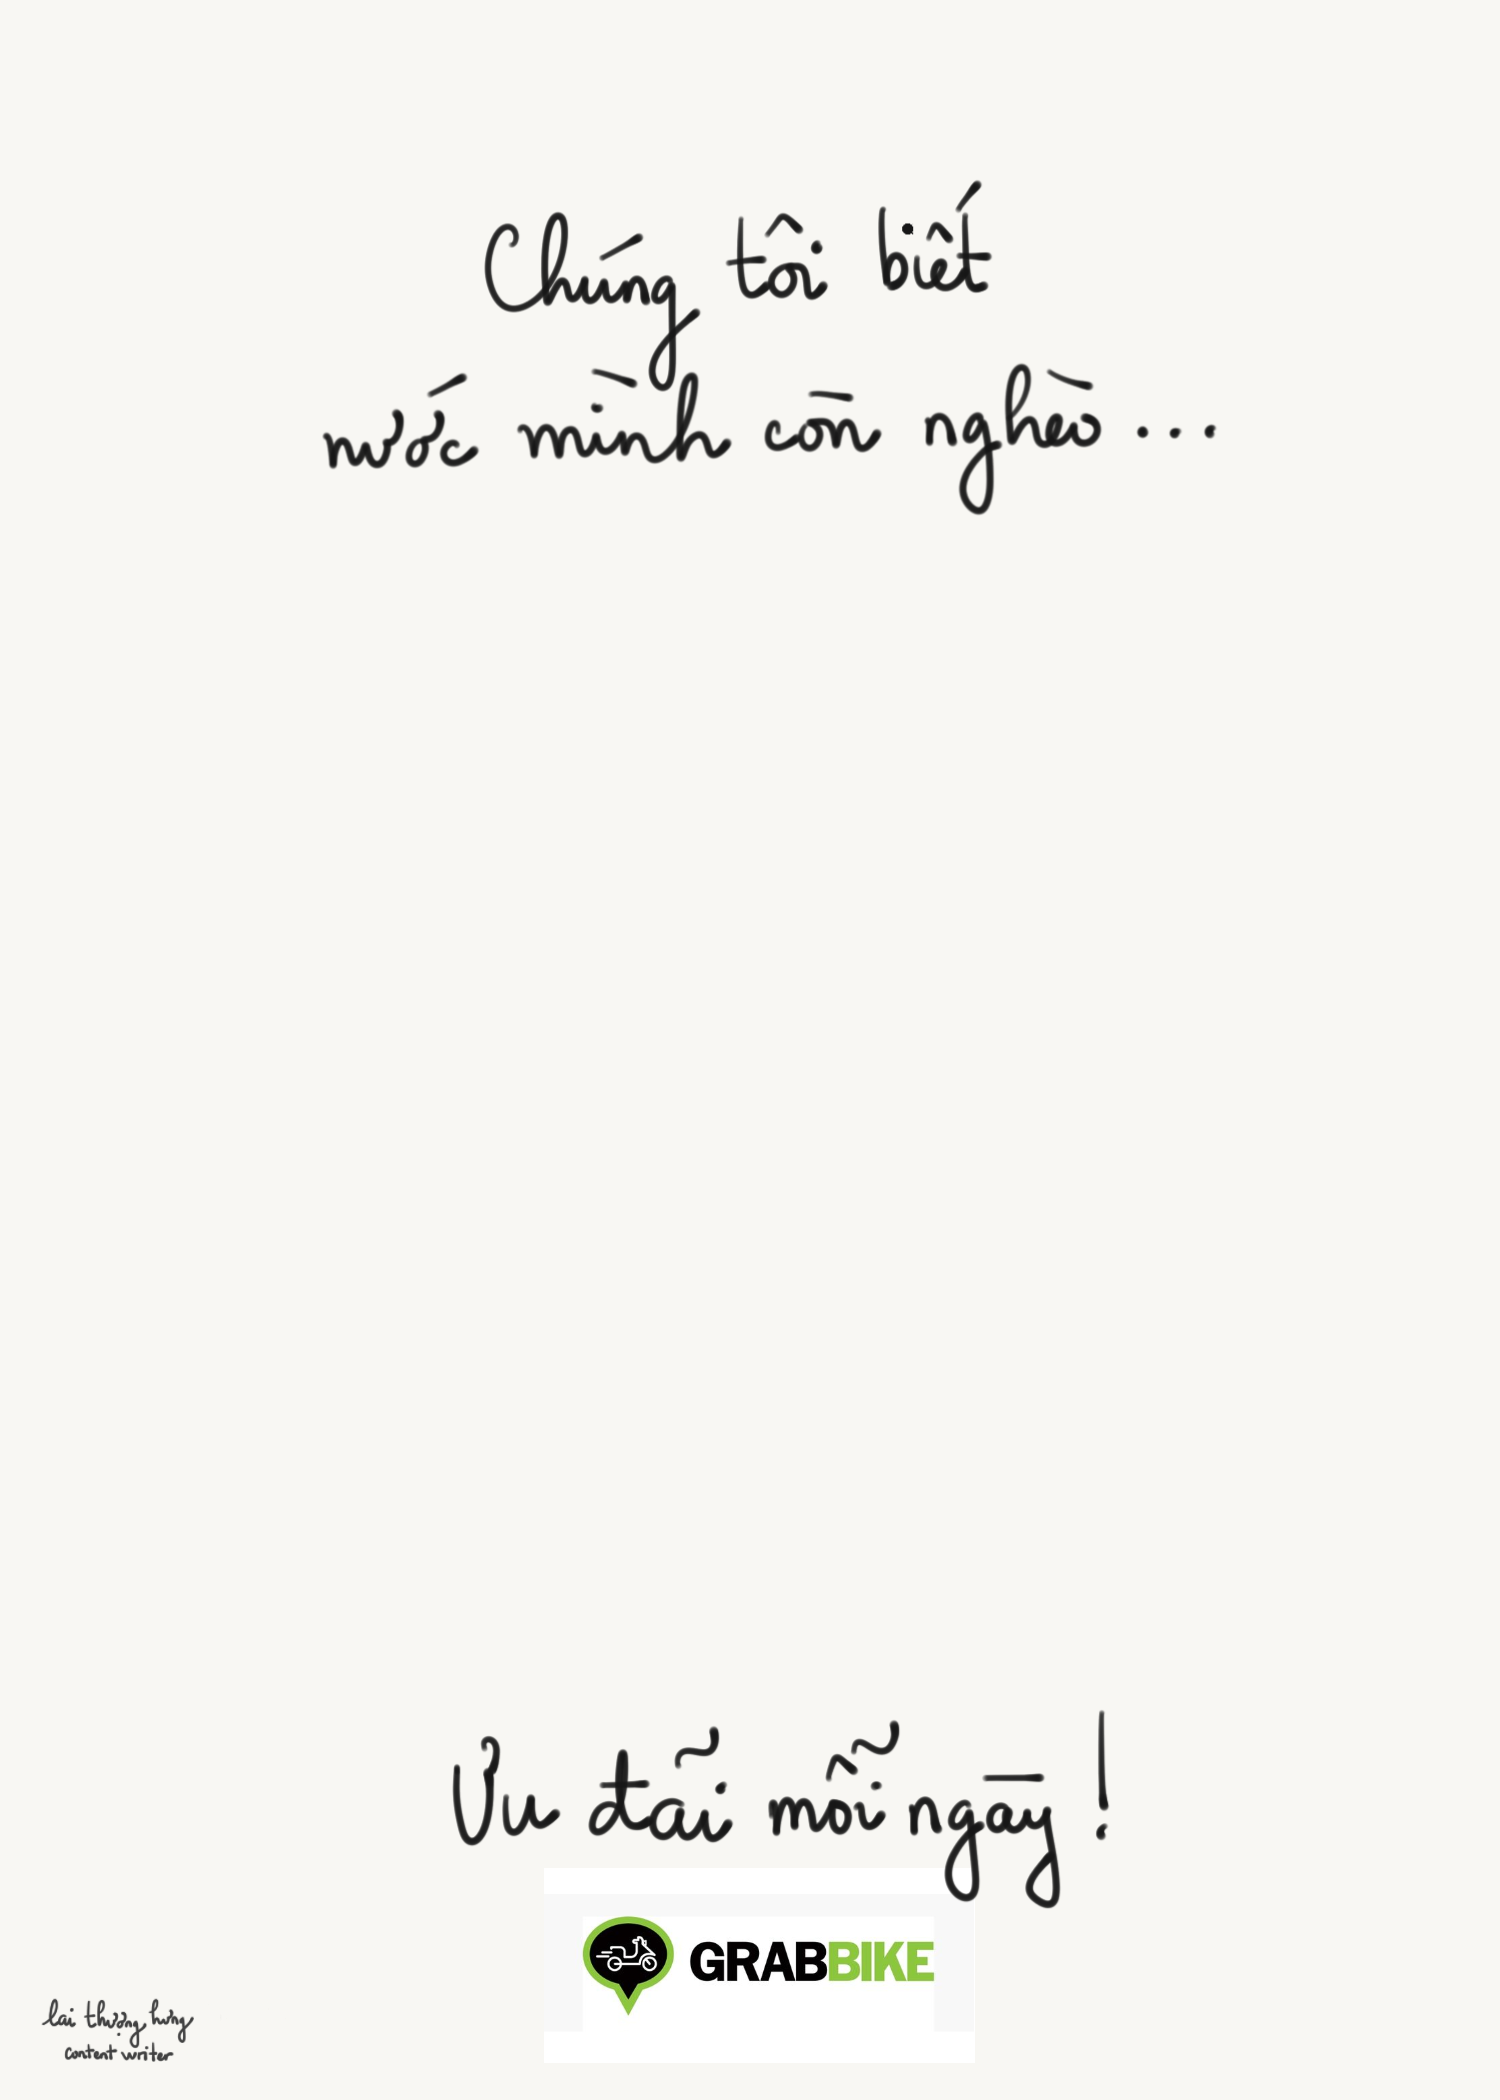 Chúng tôi biết
nước mình còn nghèo...
Ưu đãi mỗi ngày!
GRABBIKE
lai thượng hưng
content writer